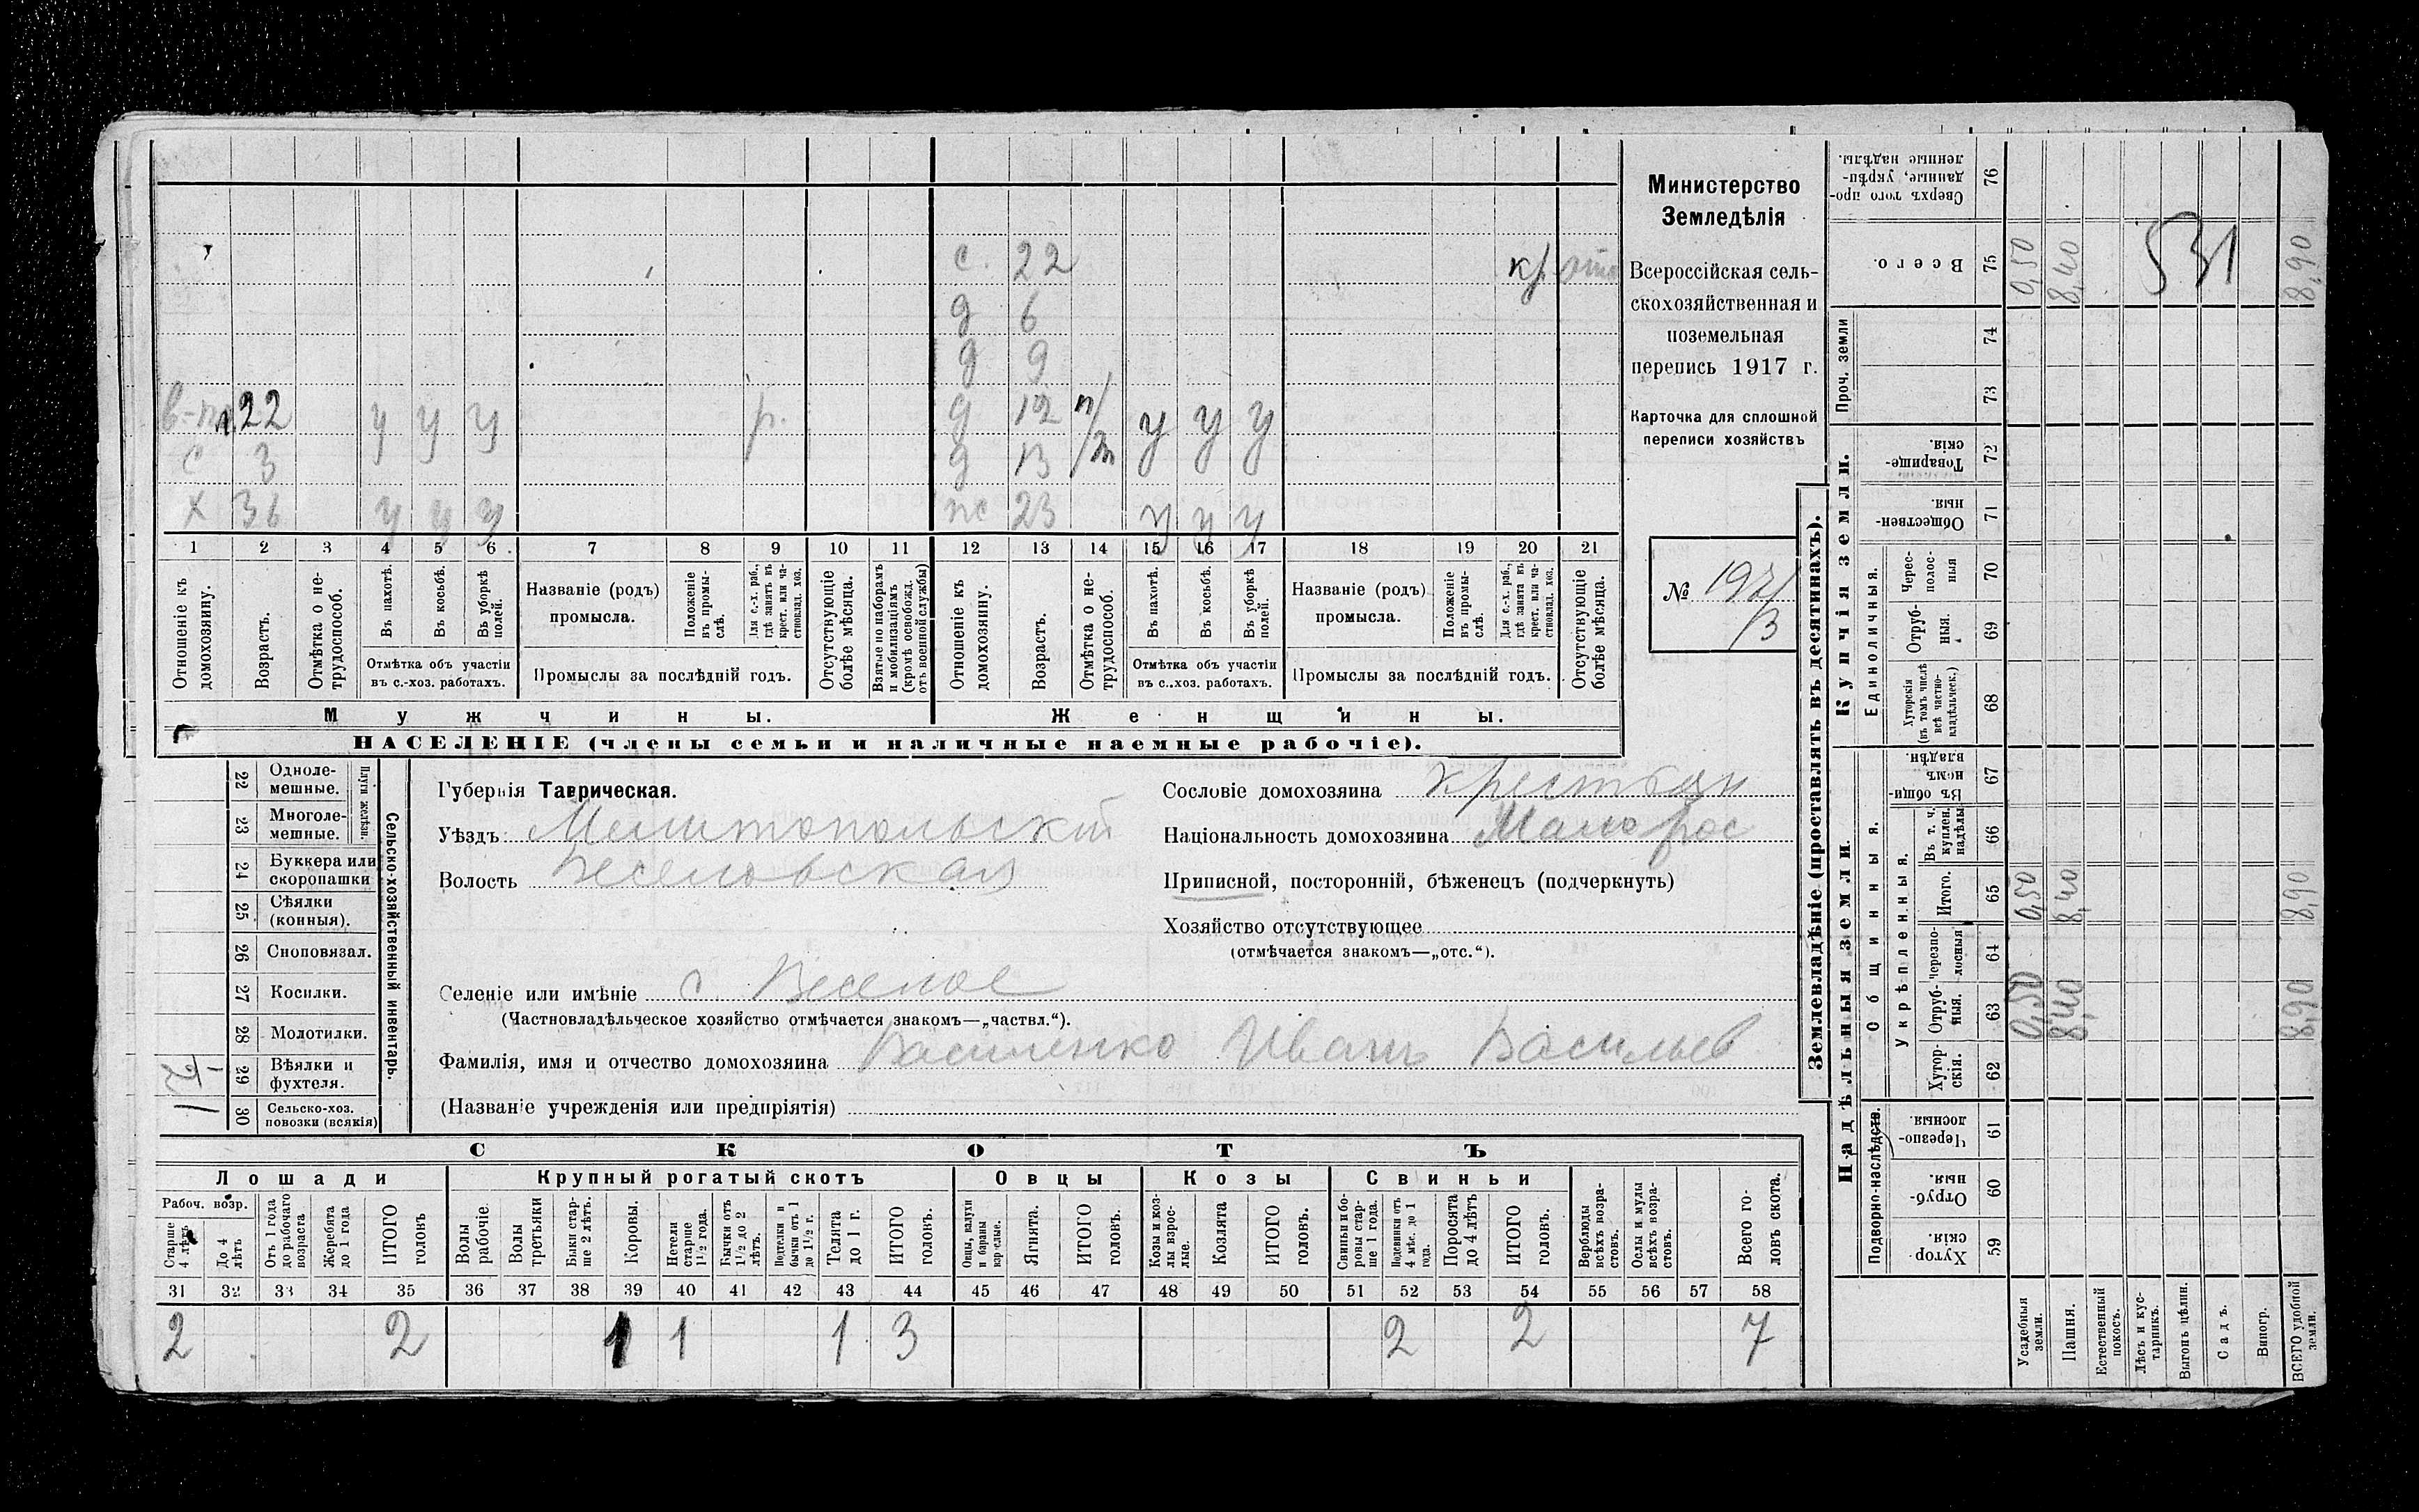 с. 22 кр отс
д 6
д 9
22 у у у р. д 12 п/ у у у
с 3 д 13 /т
х 36 у у у жс 23 у у у
1 2 3 4 5 6 7 8 9 10 11 12 13 14 15 16 17 18 19 20 21
Отношеніе къ домохозяину.
Возрастъ.
Отмѣтка о не-трудоспособ.
Въ пахотѣ.
Въ косьбѣ.
Въ уборкѣ полей.
Отмѣтка объ участіи
въ с.-хоз. работахъ.
Названіе (родъ)
промысла.
Положеніе въ промы-слѣ.
Для с.-х. раб., гдѣ занятъ въ крест. или ча-стновлад. хоз.
Промыслы за послѣдній годъ.
Отсутствующіе болѣе мѣсяца.
Взятые по наборамъ и мобилизаціямъ (кромѣ освобожд. отъ военной службы)
Отношеніе къ домохозяину.
Возрастъ.
Отмѣтка о не-трудоспособ.
Въ пахотѣ.
Въ косьбѣ.
Въ уборкѣ полей.
Отмѣтка объ участіи
въ с..хоз. работахъ.
Названіе (родъ)
промысла.
Положеніе въ промы-слѣ.
Для с.-х. раб., гдѣ занята въ крест. или ча-стновлад. хоз.
Промыслы за послѣдній годъ.
Отсутствующіе болѣе мѣсяца.
Мужчины.
Женщины.
НАСЕЛЕНІЕ (члены семьи и наличные наемные рабочіе).
Министерство
Земледѣлія
Всероссійская сель-
скохозяйственная и
поземельная
перепись 1917 г.
Карточка для сплошной
переписи хозяйствъ
№
/3
22 Однолемешные.
23 Многолемешные.
Плуги желѣзн.
24 Буккера или скоропашки
25 Сѣялки (конныя).
26 Сноповязал.
27 Косилки.
28 Молотилки.
29 Вѣялки и фухтеля.
30 Сельско-хоз. повозки (всякія)
1
Сельско-хозяйственный инвентарь.
Губернія Таврическая.
Уѣздъ Мелитопольскій
Волость Веселовская
Селеніе или имѣніе с. Веселое
(Частновладѣльческое хозяйство отмѣчается знакомъ—„частвл.“).
Фамилія, имя и отчество домохозяина Василенко Иванъ Васильев
(Названіе учрежденія или предпріятія)
Сословіе домохозяина крестьян
Національность домохозяина Малорос
Приписной, посторонній, бѣженецъ (подчеркнуть)
Хозяйство отсутствующее
(отмѣчается знакомъ—„отс.“).
СКОТЪ
Лошади
Крупный рогатый скотъ
Овцы
Козы
Свиньи
Рабоч. возр.
Старше 4 лѣтъ
До 4 лѣтъ
Отъ 1 года до рабочаго возраста
Жеребята до 1 года
ИТОГО головъ
Волы рабочіе.
Волы третьяки
Быки стар-ше 2 лѣтъ.
Коровы.
Нетели старше 1½ года.
Бычки отъ 1½ до 2 лѣтъ.
бычки отъ 1 до 1½ г.
Телята до 1 г.
ИТОГО головъ.
Овцы, валухи и бараны взрослые.
Ягнята.
ИТОГО головъ.
Козы и коз-лы взрос-лые.
Козлята
ИТОГО головъ.
Свиньи бо-ровы стар-ше 1 года.
Подсвинки отъ 4 мѣс. до 1 года.
Поросята до 4 лѣтъ
ИТОГО головъ.
Верблюды всѣхъ возра-стовъ.
Ослы и мулы всѣхъ возра-стовъ.
Всего го-ловъ скота.
31 32 33 34 35 36 37 38 39 40 41 42 43 44 45 46 47 48 49 50 51 52 53 54 55 56 57 58
2 2 1 1 1 3 2 2 7
Землевладѣніе (проставлять въ десятинахъ).
Надѣльныя земли.
Купчія земли.
Проч. земли
Подворно-наслѣдств.
Общинныя.
Укрѣпленныя.
Единоличныя.
59 Хутор-скія.
60 Отруб-ныя.
61 Черезпо-лосныя
62 Хутор-скія.
63 Отруб-ныя.
64 Черезпо-лосныя
65 Итого.
66 Въ т. ч. куплен. надѣлы
67 Въ общи-номъ владѣн.
68 Хуторскія (въ томъ числѣ всѣ частно-владѣльческ.)
69 Отруб-ныя.
70 Черес-полос-ныя
71 Обществен-ныя
72 Товарище-скія.
73
74
75 Всего.
76 Сверхъ того про-данные, укрѣп-ленные надѣлы.
Усадебныя земли. 0,50 0,50 0,50
Пашня. 8,40 8,40 8,40
Естественный покосъ.
Лѣсъ и кус-тарникъ.
Выгонъ цѣлин.
Садъ.
Виногр.
ВСЕГО удобной земли. 8,90 8,90 8,90
531